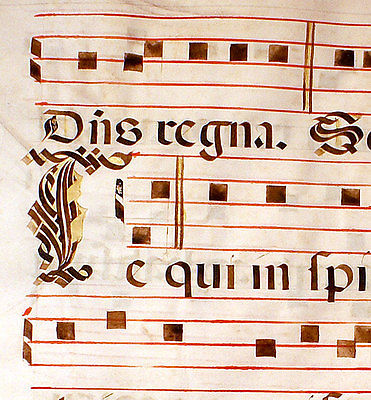 Dñs regna. Se
e qui in ſpi